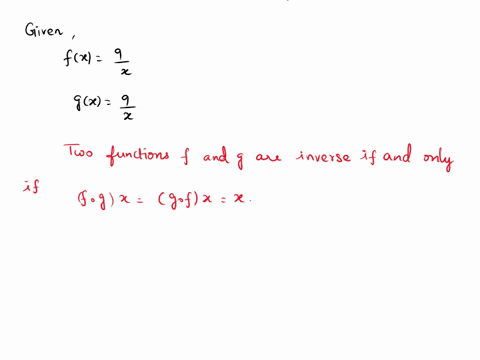 Given,
f(x) = 9/x
g(x) = 9/x
Two functions f and g are inverse if and only
if (f∘g)x = (g∘f)x = x.